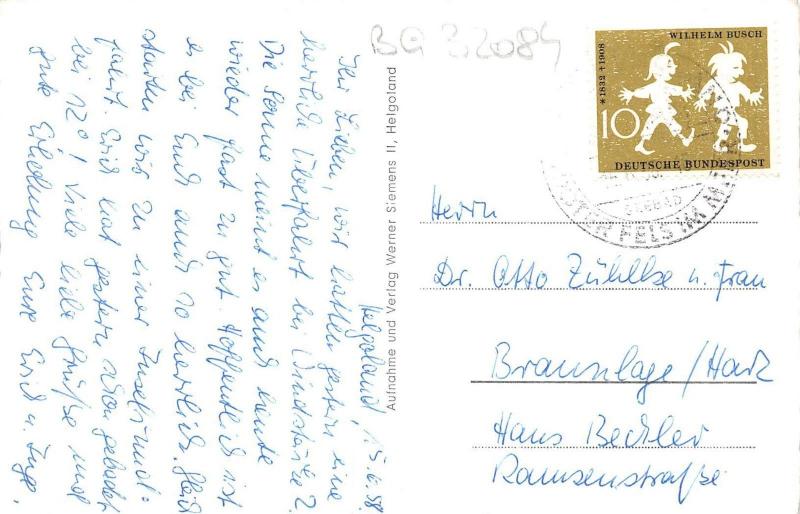 BG B2084
Helgoland, 15.6.58.
Ihr Lieben, wir hatten gestern eine
herrliche Überfahrt bei Windstärke 2.
Die Sonne meint es auch heute
wieder fast zu gut. Hoffentlich ist
es bei Euch auch so herrlich. Gleich
starten wir zu einer Inselrund-
fahrt. Erich hat gestern schon gebadet
bei 12°! Viele liebe Grüße und
gute Erholung Eure Erich u. Inge.
Aufnahme und Verlag Werner Siemens II, Helgoland
WILHELM BUSCH
*1832 +1908
10
DEUTSCHE BUNDESPOST
SEEBAD
FELS IM
Herrn
Dr. Otto u. Frau
Braunlage/Harz
Hans Bechler
Ramsenstraße